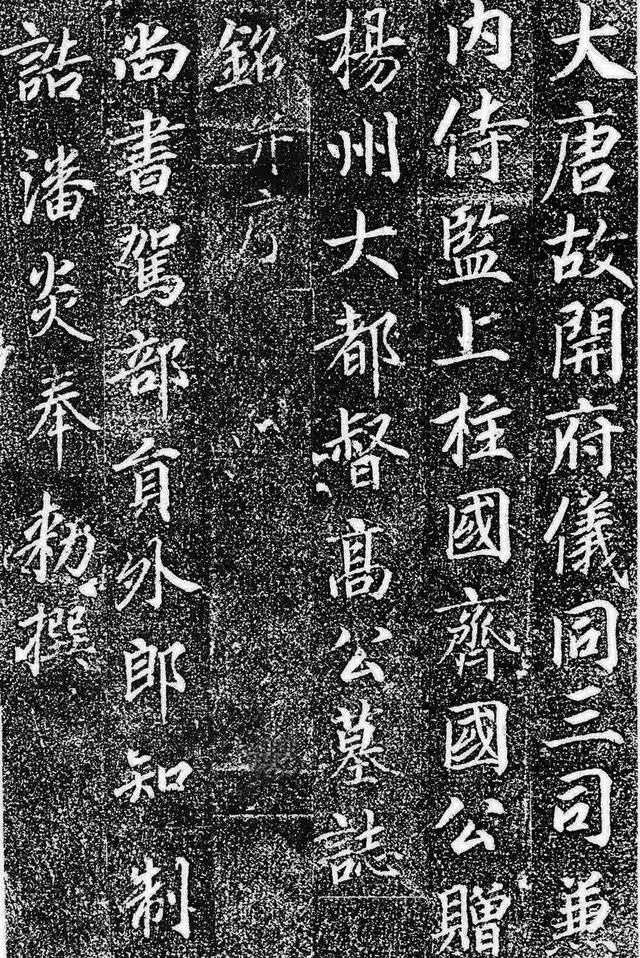 大唐故開府儀同三司兼
内侍監上柱國齊國公贈
楊州大都督高公墓誌
銘并序
尚書駕部貟外郎知制
誥潘炎奉勑撰